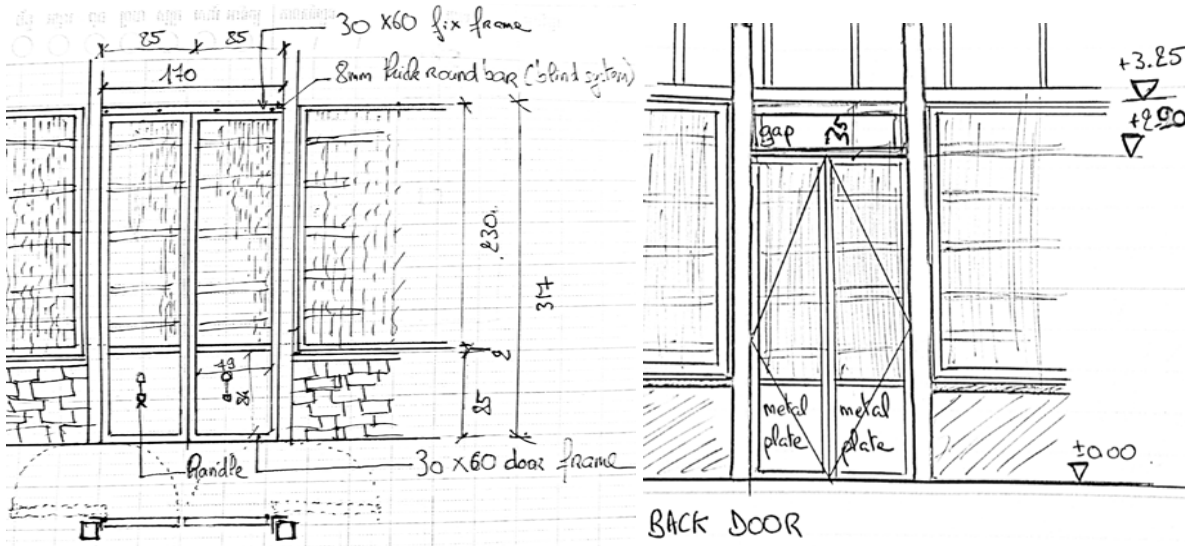 30 x60 fix frame
85
85
170
8mm thick round bar ('blind system)
230
317
2
85
49
handle
30 x60 door frame
+3.25
+2.90
gap
35
metal plate
metal plate
±0.00
BACK DOOR